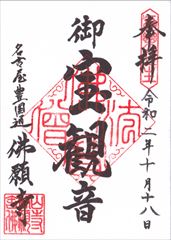 奉拝
令和二年十月十八日
御宝観音
名古屋豊国通
佛願寺
佛法僧